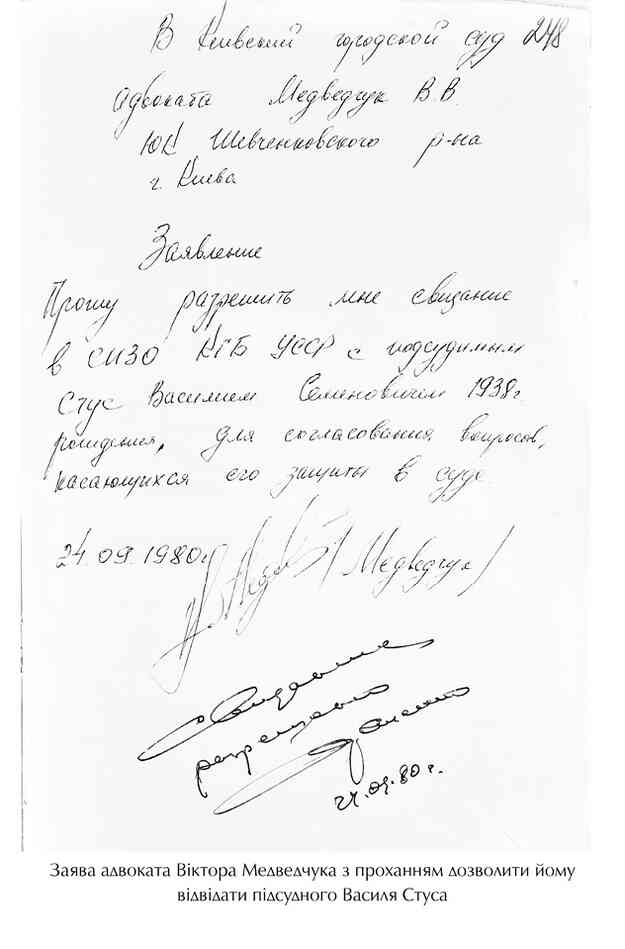 В Киевский городской суд 248
Адвоката Медведчук В.В.
ЮК Шевченковского р-на
г. Киева
Заявление
Прошу разрешить мне свидание
в СИЗО КГБ УССР с подсудимым
Стус Василием Семеновичем 1938г.
рождения, для согласования вопросов,
касающихся его защиты в суде.
24.09.1980г. /Медведчук/
Свидание
разрешено
24.09.80г.
Заява адвоката Віктора Медведчука з проханням дозволити йому
відвідати підсудного Василя Стуса